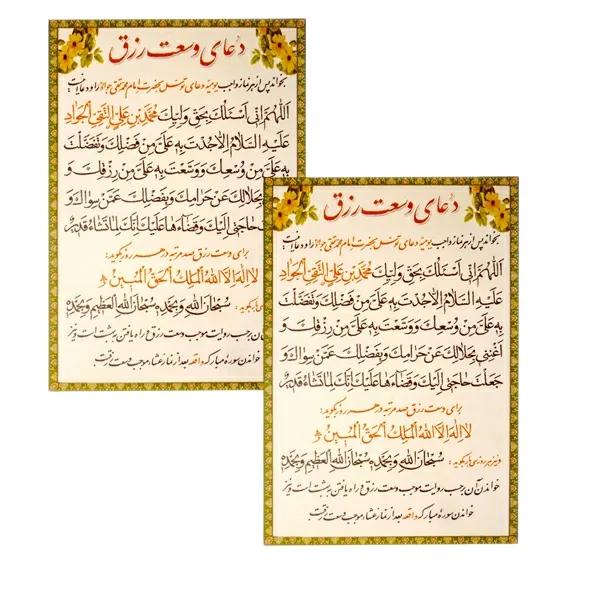 دعای وسعت رزق
بخواند پس از هر نماز واجب یومیه دعای توسل بحضرت امام محمد تقی جواد را و دعا اینست
اَللّهُمَّ اِنّی اَسْئَلُكَ بِحَقِّ وَلِیِّكَ مُحَمَّدِ بْنِ عَلِیٍّ التَّقِیِّ الْجَوادِ
عَلَیْهِ السَّلامُ اِلّا جُدْتَ بِهِ عَلَیَّ مِنْ فَضْلِكَ وَ تَفَضَّلْتَ
بِهِ عَلَیَّ مِنْ وُسْعِكَ وَ وَسَّعْتَ بِهِ عَلَیَّ مِنْ رِزْقِكَ وَ
بِحَلالِكَ عَنْ حَرامِكَ وَ بِفَضْلِكَ عَمَّنْ سِواكَ وَ
حاجَتی اِلَیْكَ وَ قَضاءَها عَلَیْكَ اِنَّكَ لِما تَشاءُ قَدیرٌ
برای وسعت رزق صد مرتبه در هر روز بگوید:
لا اِلهَ اِلَّا اللهُ الْمَلِكُ الْحَقُّ الْمُبینُ
بگوید: سُبْحانَ اللهِ وَ بِحَمْدِهِ سُبْحانَ اللهِ الْعَظیمِ وَ بِحَمْدِهِ
آن برحسب روایت موجب وسعت رزق و راه یافتن به بهشت است و نیز
خواندن سوره مبارکه واقعه بعد از نماز عشاء موجب وسعت رزقست
دعای وسعت رزق
بخواند پس از هر نماز واجب یومیه دعای توسل بحضرت امام محمد تقی جواد را و دعا اینست
اَللّهُمَّ اِنّی اَسْئَلُكَ بِحَقِّ وَلِیِّكَ مُحَمَّدِ بْنِ عَلِیٍّ التَّقِیِّ الْجَوادِ
عَلَیْهِ السَّلامُ اِلّا جُدْتَ بِهِ عَلَیَّ مِنْ فَضْلِكَ وَ تَفَضَّلْتَ
بِهِ عَلَیَّ مِنْ وُسْعِكَ وَ وَسَّعْتَ بِهِ عَلَیَّ مِنْ رِزْقِكَ وَ
اَغْنِنی بِحَلالِكَ عَنْ حَرامِكَ وَ بِفَضْلِكَ عَمَّنْ سِواكَ وَ
جَعَلْتَ حاجَتی اِلَیْكَ وَ قَضاءَها عَلَیْكَ اِنَّكَ لِما تَشاءُ قَدیرٌ
برای وسعت رزق صد مرتبه در هر روز بگوید:
لا اِلهَ اِلَّا اللهُ الْمَلِكُ الْحَقُّ الْمُبینُ
و نیز هر روز سی بار بگوید: سُبْحانَ اللهِ وَ بِحَمْدِهِ سُبْحانَ اللهِ الْعَظیمِ وَ بِحَمْدِهِ
خواندن آن برحسب روایت موجب وسعت رزق و راه یافتن به بهشت است و نیز
خواندن سوره مبارکه واقعه بعد از نماز عشاء موجب وسعت رزقست